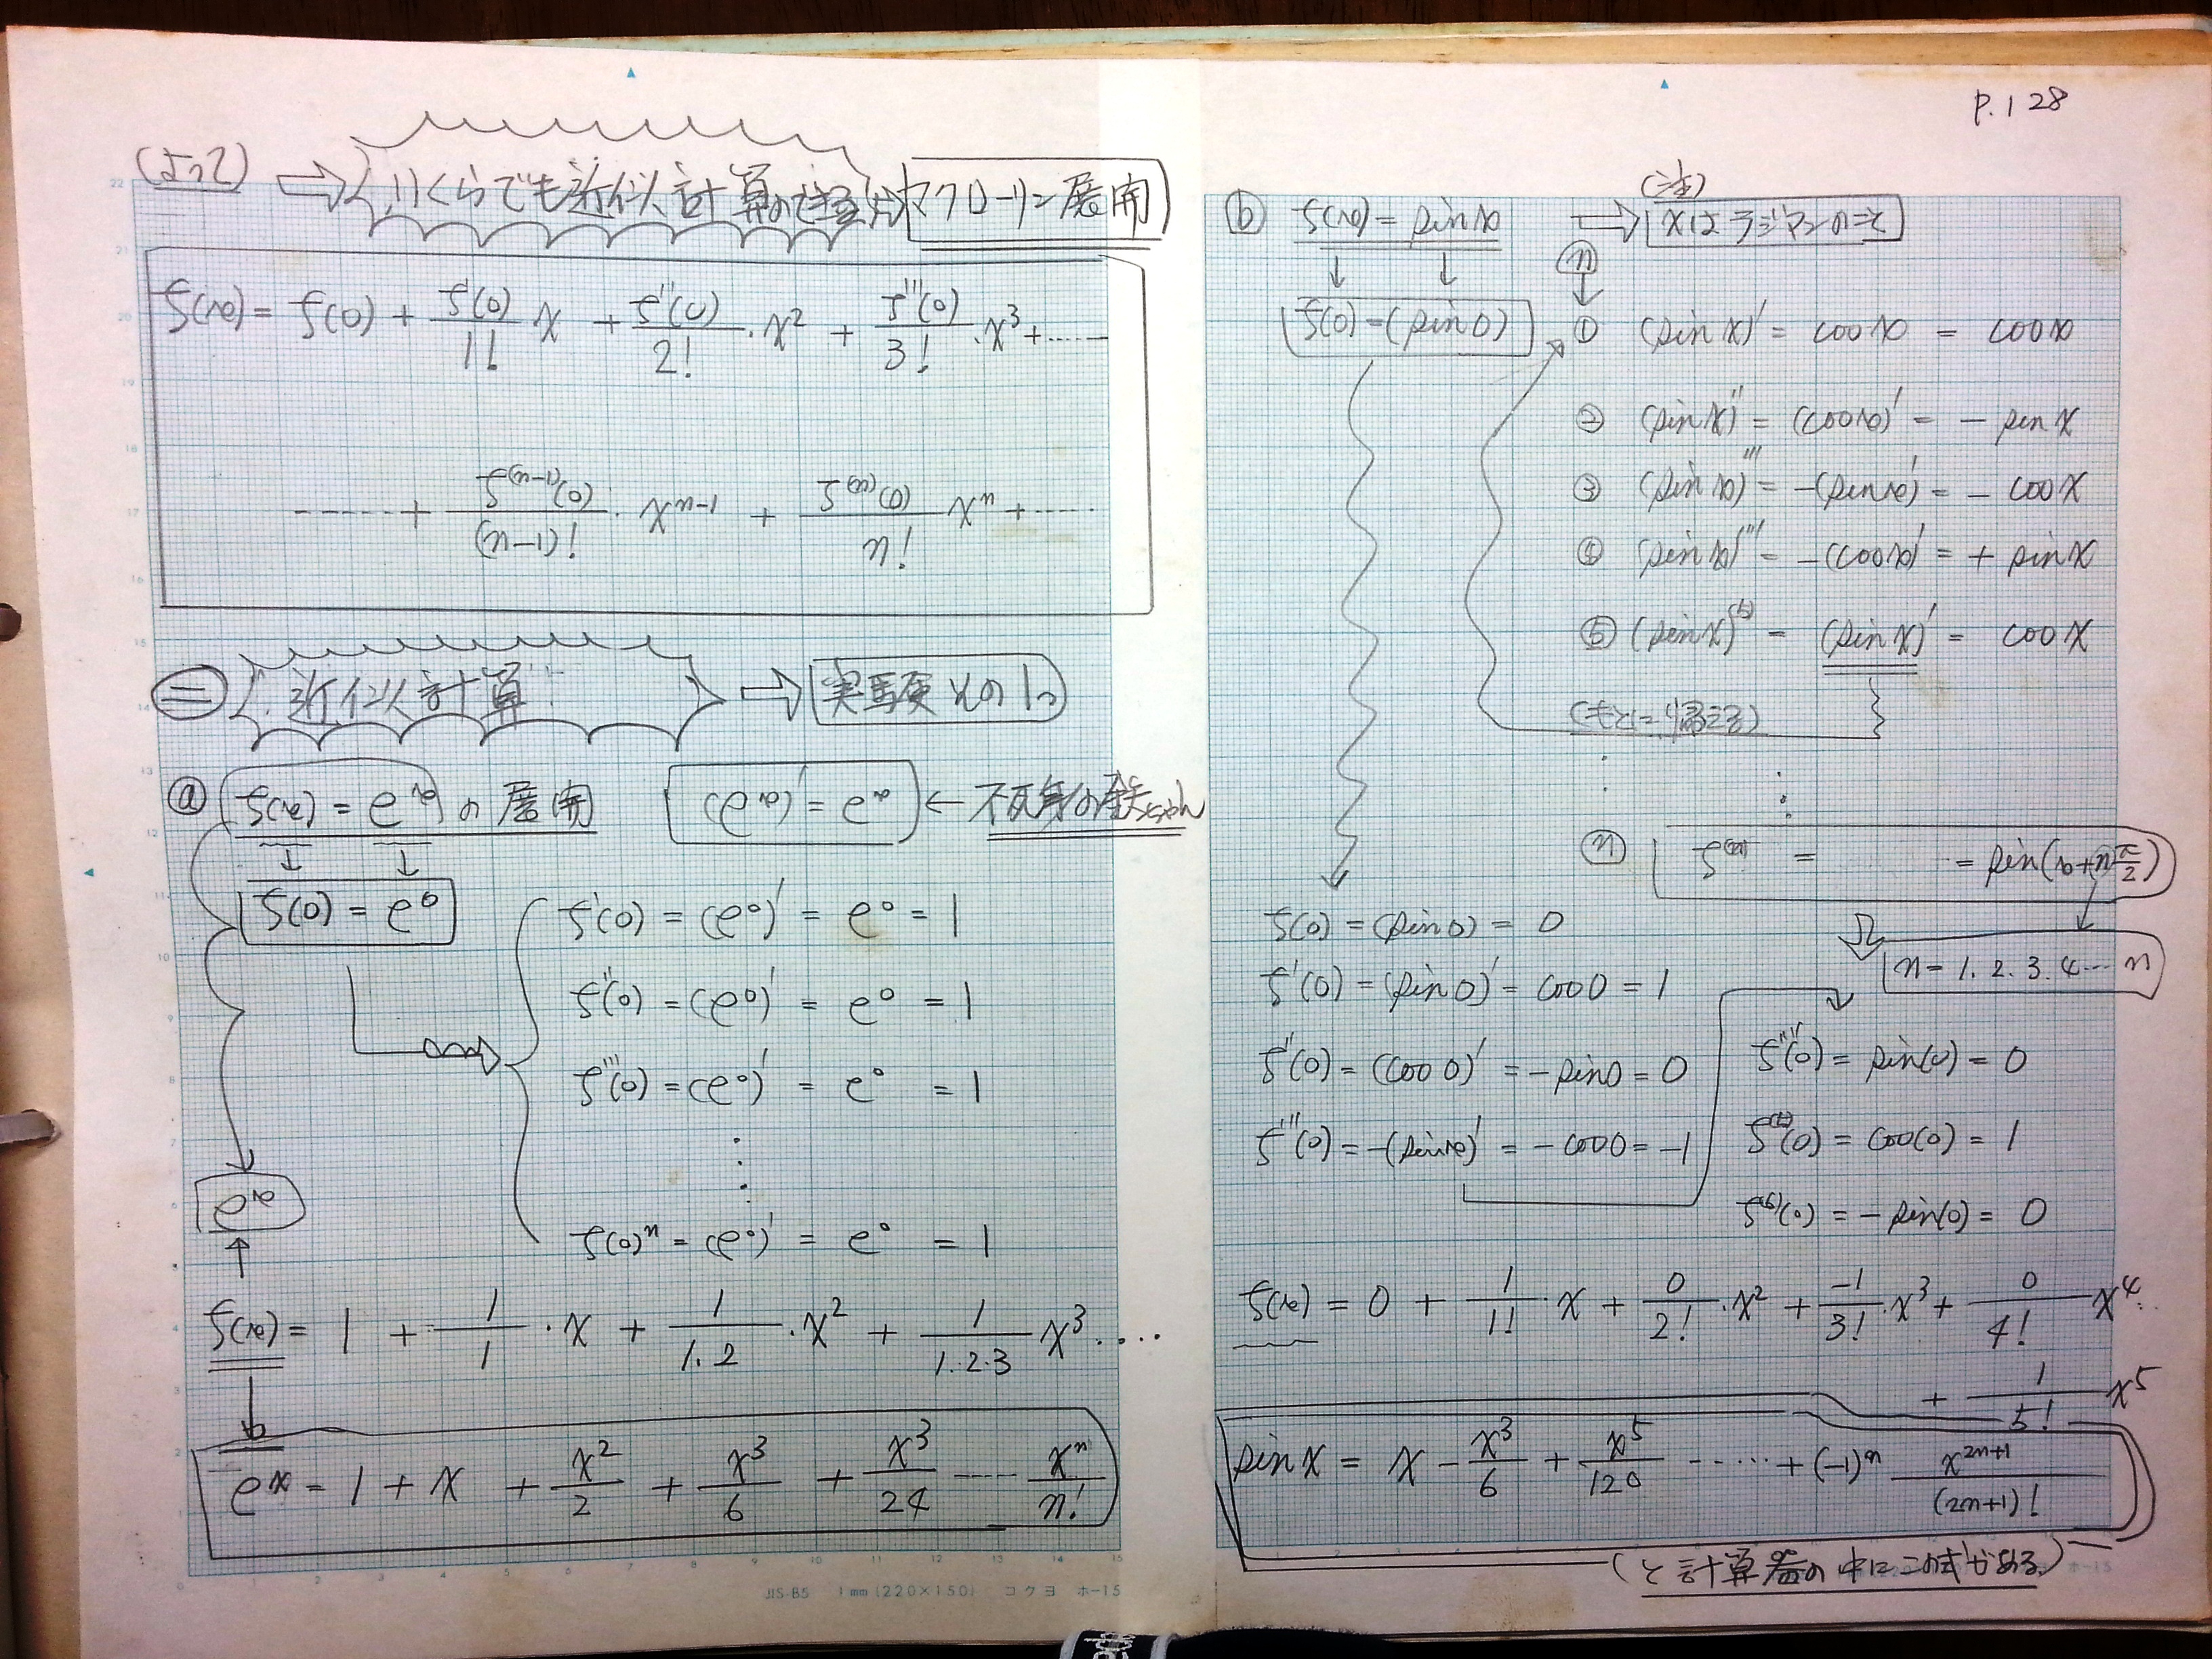 p.128
(よって) ⇒ いくらでも近似計算のできる式 マクローリン展開
f(x) = f(0) + f'(0)/1! x + f''(0)/2! ・x² + f'''(0)/3! ・x³ + ……
…… + f⁽ⁿ⁻¹⁾(0)/(n-1)! ・ xⁿ⁻¹ + f⁽ⁿ⁾(0)/n! xⁿ + ……
㊂ 近似計算 ⇒ 実験その1。
ⓐ f(x) = eˣ の展開 (eˣ)' = eˣ ← 不死身の鉄ちゃん
f(0) = e⁰
f'(0) = (e⁰)' = e⁰ = 1
f''(0) = (e⁰)' = e⁰ = 1
f'''(0) = (e⁰)' = e⁰ = 1
f(0)ⁿ = (e⁰)' = e⁰ = 1
eˣ
f(x) = 1 + 1/1 ・x + 1/1.2 ・x² + 1/1.2.3 x³ ….
eˣ = 1 + x + x²/2 + x³/6 + x³/24 …… xⁿ/n!
JIS-B5 1mm (220×150) コクヨ ホ-15
ⓑ f(x) = sin x ⇒ (注) xはラジアンのこと
f(0) = (sin 0)
ⓝ
① (sin x)' = cos x = cos x
② (sin x)'' = (cos x)' = - sin x
③ (sin x)''' = -(sin x)' = - cos x
④ (sin x)'''' = -(cos x)' = + sin x
⑤ (sin x)⁽⁵⁾ = (sin x)' = cos x
(もとに帰える)
ⓝ f⁽ⁿ⁾ = = sin(x + n π/2)
n = 1. 2. 3. 4 … n
f(0) = (sin 0) = 0
f'(0) = (sin 0)' = cos 0 = 1
f''(0) = (cos 0)' = - sin 0 = 0
f'''(0) = -(sin x)' = - cos 0 = -1
f''''(0) = sin(0) = 0
f⁽⁵⁾(0) = cos(0) = 1
f⁽⁶⁾(0) = - sin(0) = 0
f(x) = 0 + 1/1! ・x + 0/2! ・x² + -1/3! ・x³ + 0/4! x⁴ ..
+ 1/5! x⁵
sin x = x - x³/6 + x⁵/120 …… + (-1)ⁿ x²ⁿ⁺¹/(2n+1)!
(と計算器の中にこの式がある)
ホ-15